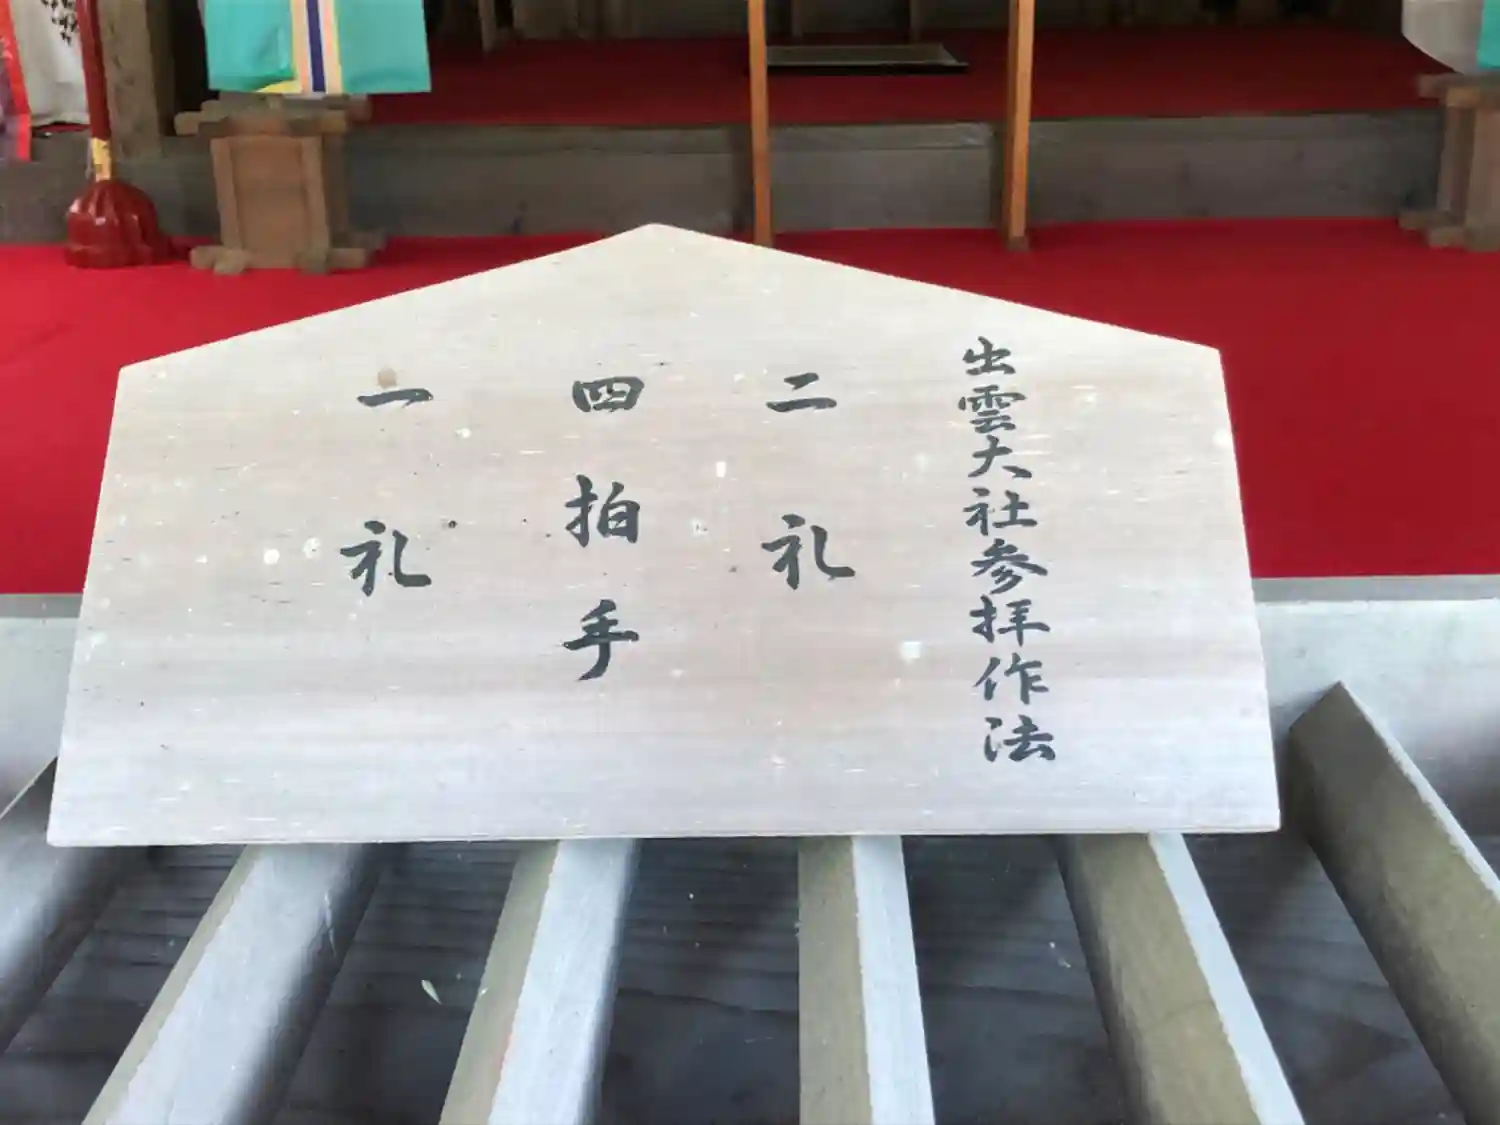 出雲大社参拝作法
二礼
四拍手
一礼